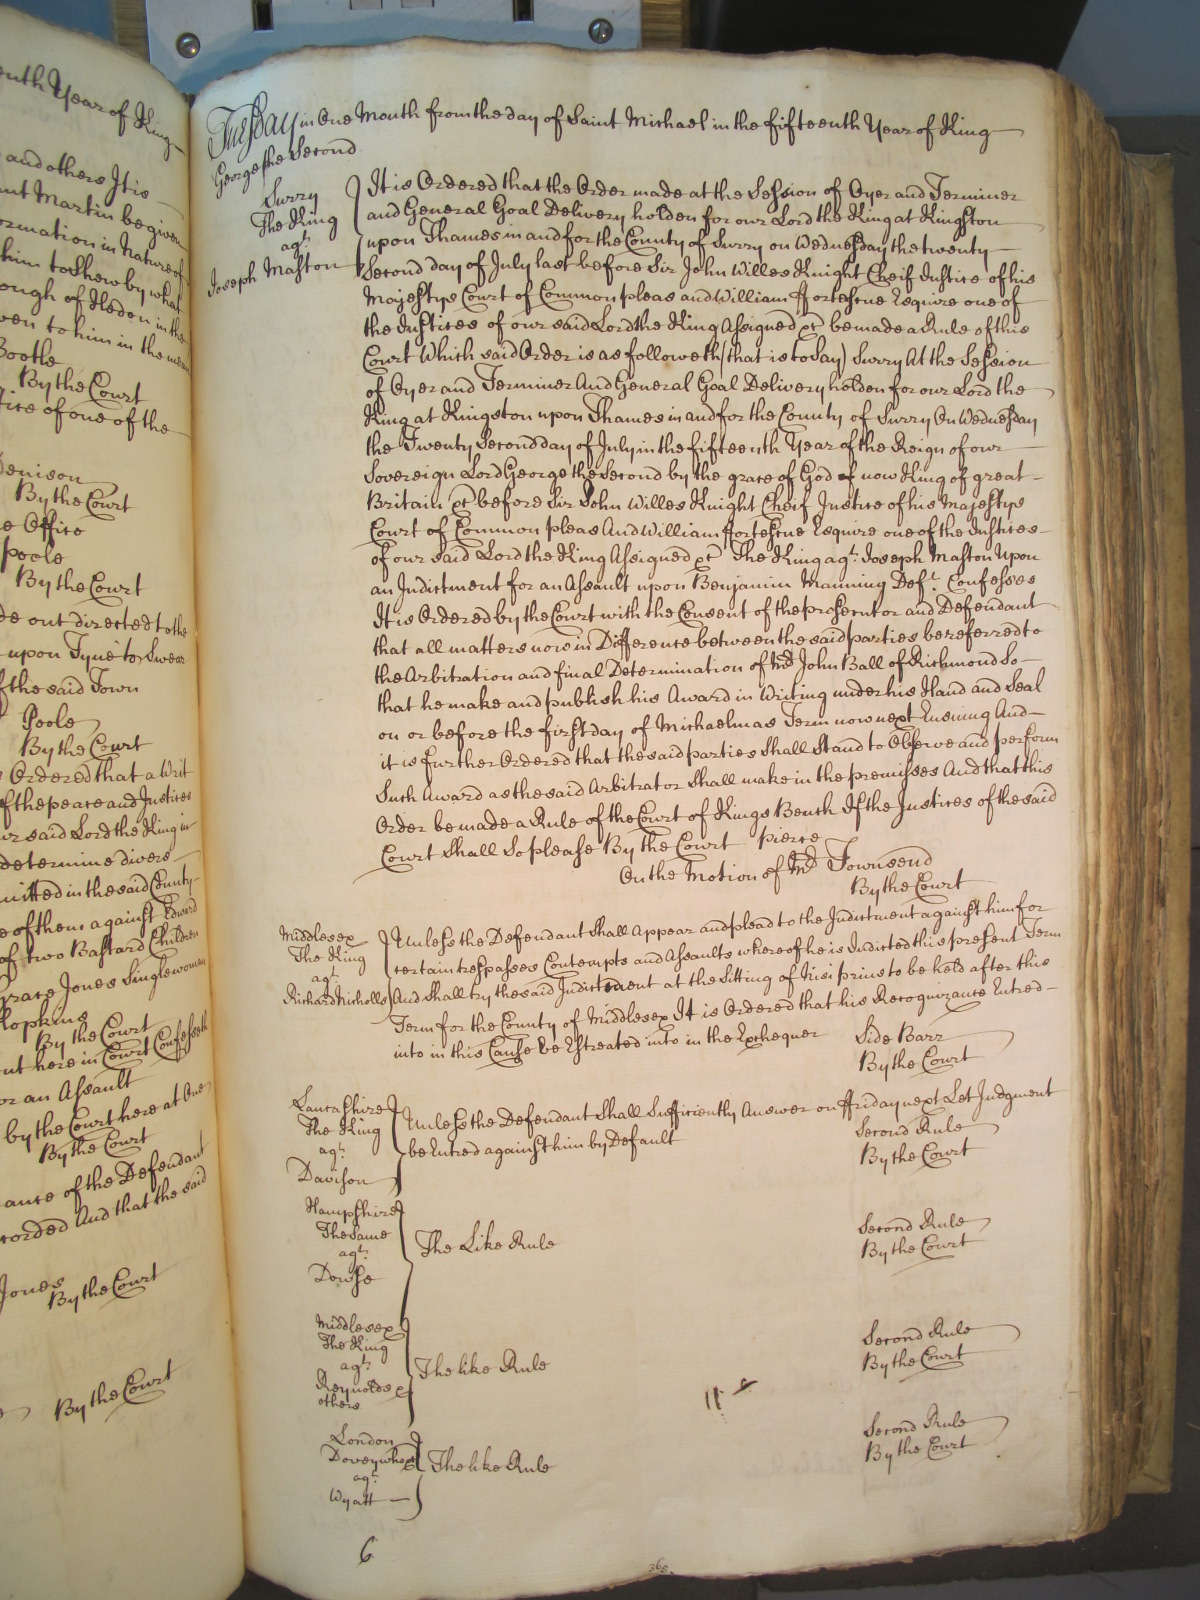 enth Year of King
and others It is
ant Martin be given
ormation in Nature of
him to Shew by what
ough of Hedon in the
ven to him in the
Bootle
By the Court
tice of one of the
Denison
By the Court
e Office
poole
By the Court
de out directed to the
upon Tyne to Swear
f the said Town
Poole
By the Court
Ordered that a Writ
f the peace and Justices
ur said Lord the King in
determine divers
mitted in the said County
e of them against Edward
of two Bastard Children
Grace Jones Singlewoman
Hopkins
By the Court
nt here in Court Confesseth
or an Assault
by the Court here at One
By the Court
ance of the Defendant
corded And that the said
Jones
By the Court
By the Court
Tuesday in One Month from the day of Saint Michael in the fifteenth Year of King
George the Second
Surry
The King
agt.
Joseph Maston
It is Ordered that the Order made at the Session of Oyer and Terminer
and General Goal Delivery holden for our Lord the King at Kingston
upon Thames in and for the County of Surry on Wednesday the twenty
Second day of July last before Sir John Willes Knight Cheif Justice of his
Majestys Court of Common pleas and William ffortescue Esquire one of
the Justices of our said Lord the King Assigned &c be made a Rule of this
Court Which said Order is as followeth (that is to Say) Surry At the Session
of Oyer and Terminer And General Goal Delivery holden for our Lord the
King at Kingston upon Thames in and for the County of Surry On Wednesday
the Twenty Second day of July in the fifteenth Year of the Reign of our
Sovereign Lord George the Second by the grace of God of now King of great
Britain &c before Sir John Willes Knight Cheif Justice of his Majestys
Court of Common pleas And William ffortescue Esquire one of the Justices
of our said Lord the King Assigned &c The King agt. Joseph Maston Upon
an Indictment for an Assault upon Benjamin Manning Deft. Confesses
It is Ordered by the Court with the Consent of the prosecutor and Defendant
that all matters now in Difference between the said parties be referred to
the Arbitration and final Determination of Mr John Ball of Richmond So
that he make and publish his Award in Writing under his Hand and Seal
on or before the first day of Michaelmas Term now next Ensuing And
it is further Ordered that the said parties Shall Stand to Observe and perform
Such Award as the said Arbitrator Shall make in the premisses And that this
Order be made a Rule of the Court of Kings Bench If the Justices of the said
Court Shall So please By the Court pierce
On the Motion of Mr Townsend
By the Court
Middlesex
The King
agt.
Richard Nicholls
Unless the Defendant Shall Appear and plead to the Indictment against him for
certain trespasses Contempts and Assaults whereof he is Indicted this present Term
And Shall try the said Indictment at the Sitting of Nisi prius to be held after this
Term for the County of Middlesex It is Ordered that his Recognizance Entred
into in this Cause be Estreated into in the Exchequer
Side Barr
By the Court
Lancashire
The King
agt.
Davison
Unless the Defendant Shall Sufficiently Answer on ffriday next Let Judgment
be Entred against him by Default
Second Rule
By the Court
Hampshire
The Same
agt.
Dowse
The Like Rule
Second Rule
By the Court
Middlesex
The King
agt.
Reynolds &
others
The like Rule
Second Rule
By the Court
London
agt.
Wyatt
The like Rule
Second Rule
By the Court
6